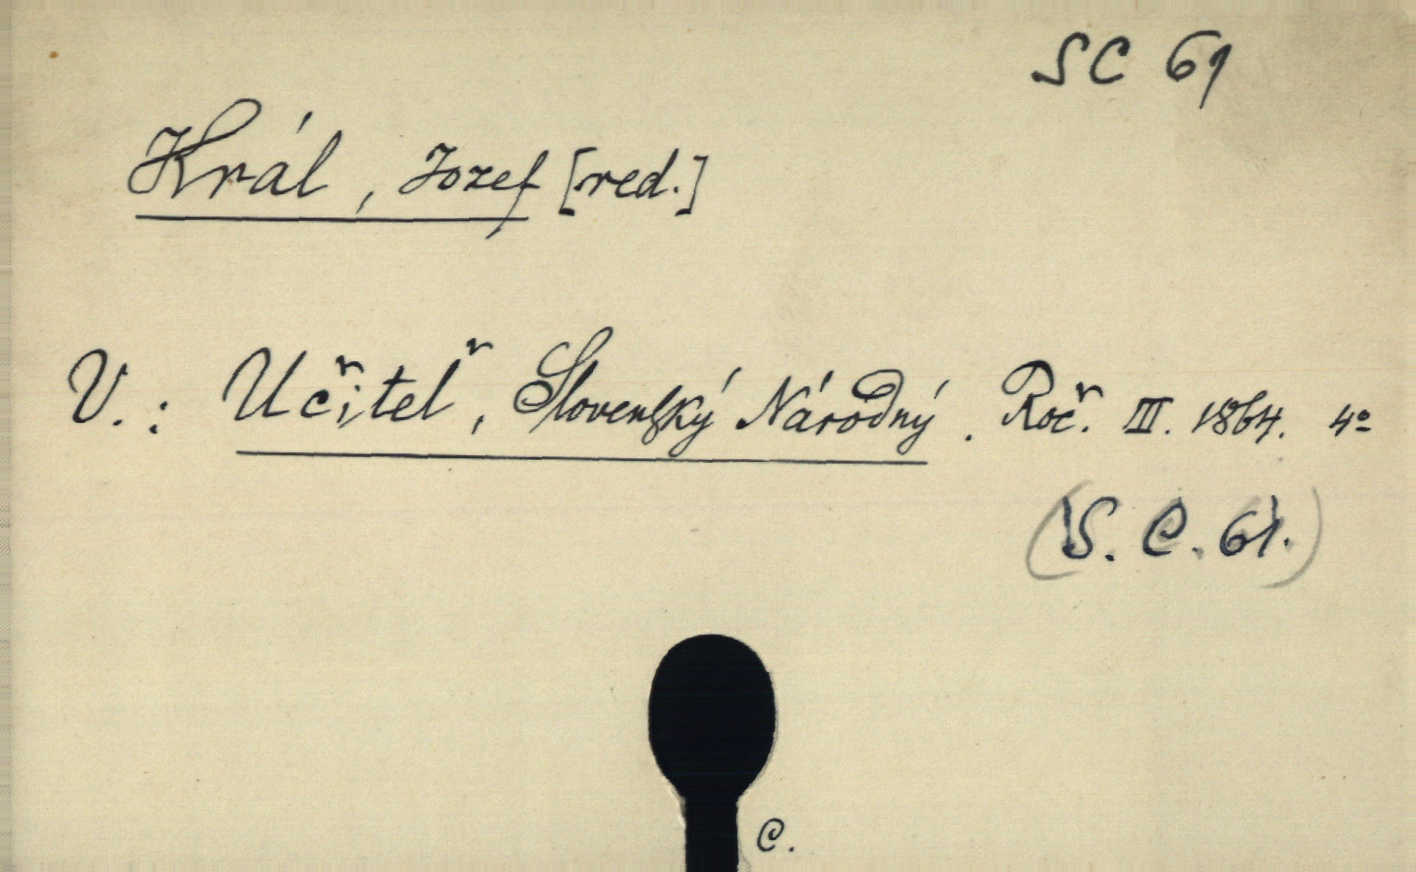 SC 61
Král, Jozef [red.]
V.: Učiteľ, Slovenský Národný. Roč. III. 1864. 4º
(S. C. 61.)
C.